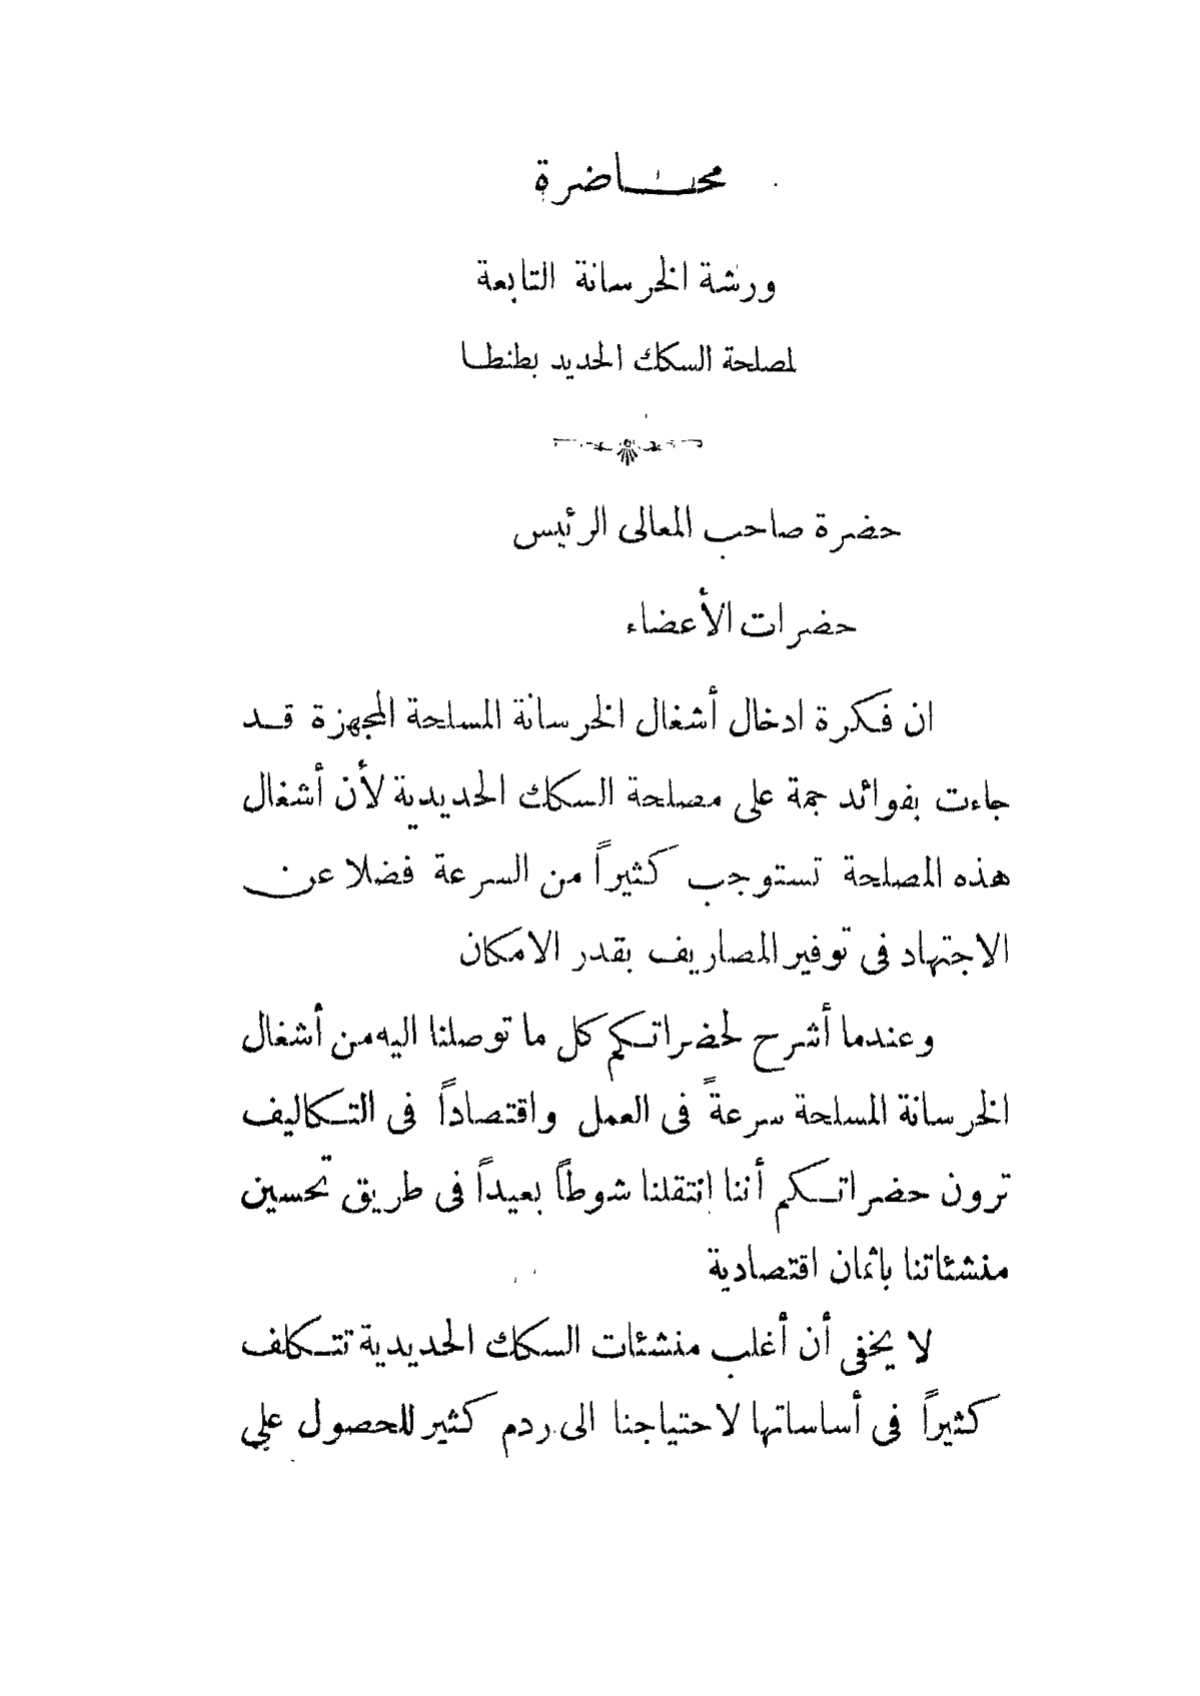 محاضرة
ورشة الخرسانة التابعة
لمصلحة السكك الحديد بطنطا
حضرة صاحب المعالى الرئيس
حضرات الأعضاء
ان فكرة ادخال أشغال الخرسانة المسلحة المجهزة قد
جاءت بفوائد جمة على مصلحة السكك الحديدية لأن أشغال
هذه المصلحة تستوجب كثيراً من السرعة فضلا عن
الاجتهاد فى توفير المصاريف بقدر الامكان
وعندما أشرح لحضراتكم كل ما توصلنا اليه من أشغال
الخرسانة المسلحة سرعةً فى العمل واقتصاداً فى التكاليف
ترون حضراتكم أننا انتقلنا شوطاً بعيداً فى طريق تحسين
منشئاتنا باثمان اقتصادية
لا يخفى أن أغلب منشئات السكك الحديدية تتكلف
كثيراً فى أساساتها لاحتياجنا الى ردم كثير للحصول على